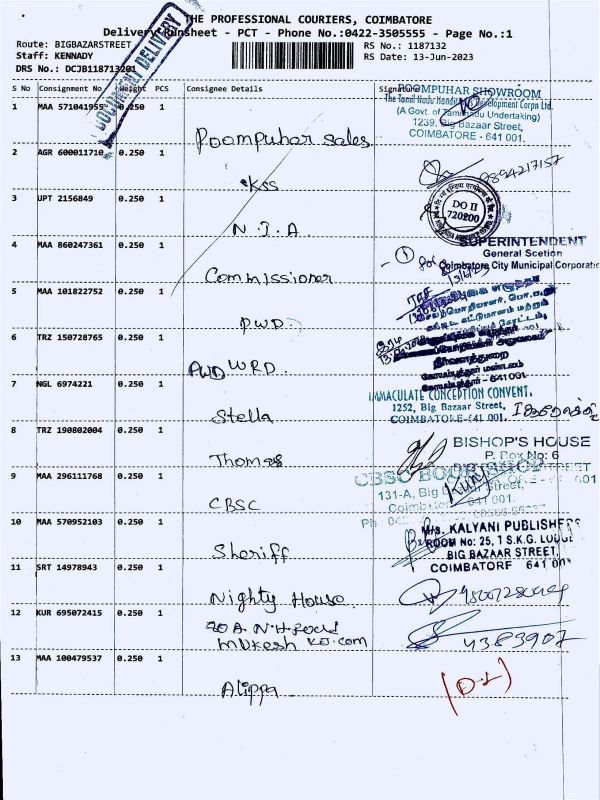 THE PROFESSIONAL COURIERS, COIMBATORE
Delivery Runsheet - PCT - Phone No.:0422-3505555 - Page No.:1
Route: BIGBAZARSTREET
RS No.: 1187132
Staff: KENNADY
RS Date: 13-Jun-2023
DRS No.: DCJB118713201
DOCUMENT DELIVERY
S No Consignment No Weight PCS Consignee Details Signature
1 MAA 571041955 0.250 1 Poompuhar sales
POOMPUHAR SHOWROOM
The Tamil Nadu Handicrafts Development Corpn Ltd.
(A Govt. of Tamilnadu Undertaking)
1239, Big Bazaar Street,
COIMBATORE - 641 001.
2 AGR 600011710 0.250 1 KSS
9894217157
3 UPT 2156849 0.250 1 N.I.A
DO II
720200
4 MAA 860247361 0.250 1 Commissioner
SUPERINTENDENT
General Scetion
Coimbatore City Municipal Corporatio
5 MAA 101822752 0.250 1 PWD
6 TRZ 150728765 0.250 1 PWD WRD
7 NGL 6974221 0.250 1 Stella
IMMACULATE CONCEPTION CONVENT,
1252, Big Bazaar Street,
COIMBATORE-641 001.
8 TRZ 190802004 0.250 1 Thomas
BISHOP'S HOUSE
P. Box No: 6
9 MAA 296111768 0.250 1 CBSC
CBSC BOOK SHOP
131-A, Big Bazaar Street,
10 MAA 570952103 0.250 1 Sheriff
M/s. KALYANI PUBLISHERS
ROOM No: 25, T S.K.G. LODGE
BIG BAZAAR STREET,
COIMBATORE 641 001
11 SRT 14978943 0.250 1 Nighty House
12 KUR 695072415 0.250 1 20A N.H. Road
Mukesh
4383907
13 MAA 100479537 0.250 1 Alippa
(D-L)